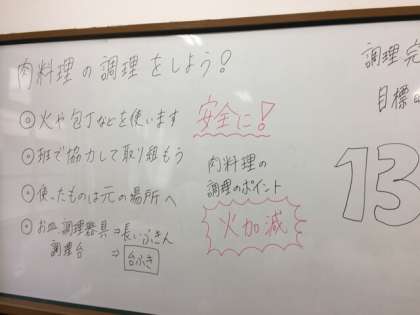 肉料理の調理をしよう!
◎火や包丁などを使います
安全に!
◎班で協力して取り組もう
◎使ったものは元の場所へ
◎お皿、調理器具⇒長いふきん
調理台⇒台ふき
肉料理の
調理のポイント
火加減
調理完
目標は
13